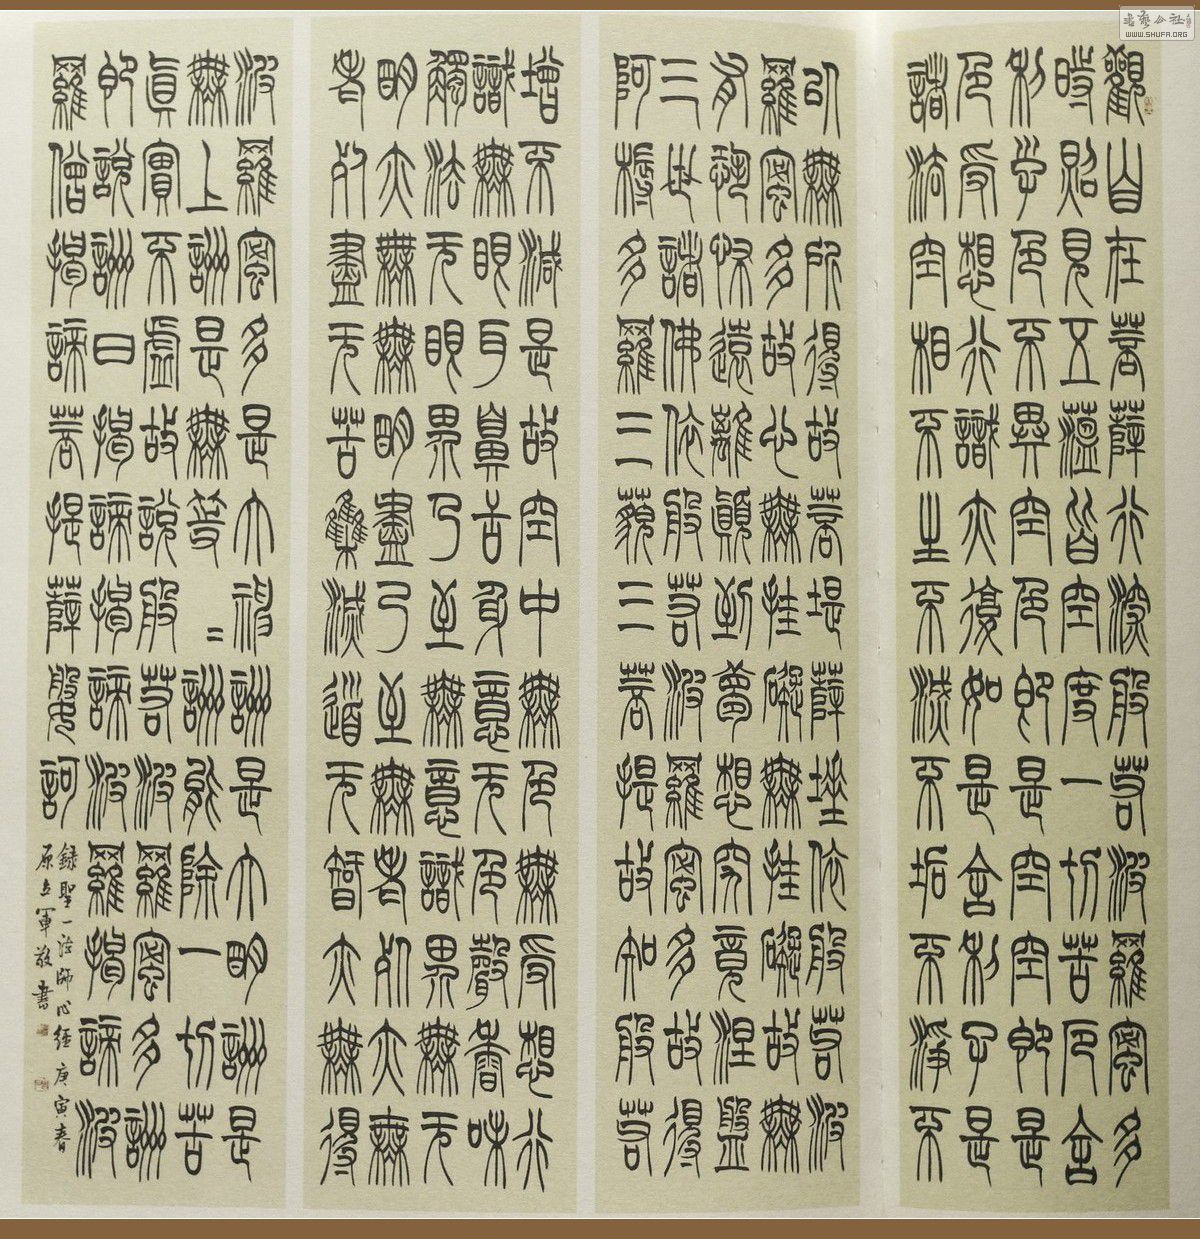 觀自在菩薩行深般若波羅蜜多
時照見五蘊皆空度一切苦厄舍
利子色不異空色即是空空即是
色受想行識亦復如是舍利子是
諸法空相不生不滅不垢不淨不
以無所得故菩堤薩埵依般若波
羅蜜多故心無挂礙無挂礙故無
有恐怖遠離顛到夢想究竟涅盤
三世諸佛依般若波羅蜜多故得
阿耨多羅三藐三菩提故知般若
增不減是故空中無色無受想行
識無眼耳鼻舌身意无色聲香味
觸法无眼界乃至無意識界無无
明亦無無明盡乃至無老死亦無
老死盡无苦集滅道无智亦無得
波羅蜜多是大神詶是大明詶是
無上詶是無等=詶能除一切苦
真實不虛故說般若波羅蜜多詶
即說詶曰揭諦揭諦波羅揭諦波
羅僧揭諦菩提薩婆訶
錄聖一法師心經庚寅春
原立軍敬書
书艺公社
WWW.SHUFA.ORG